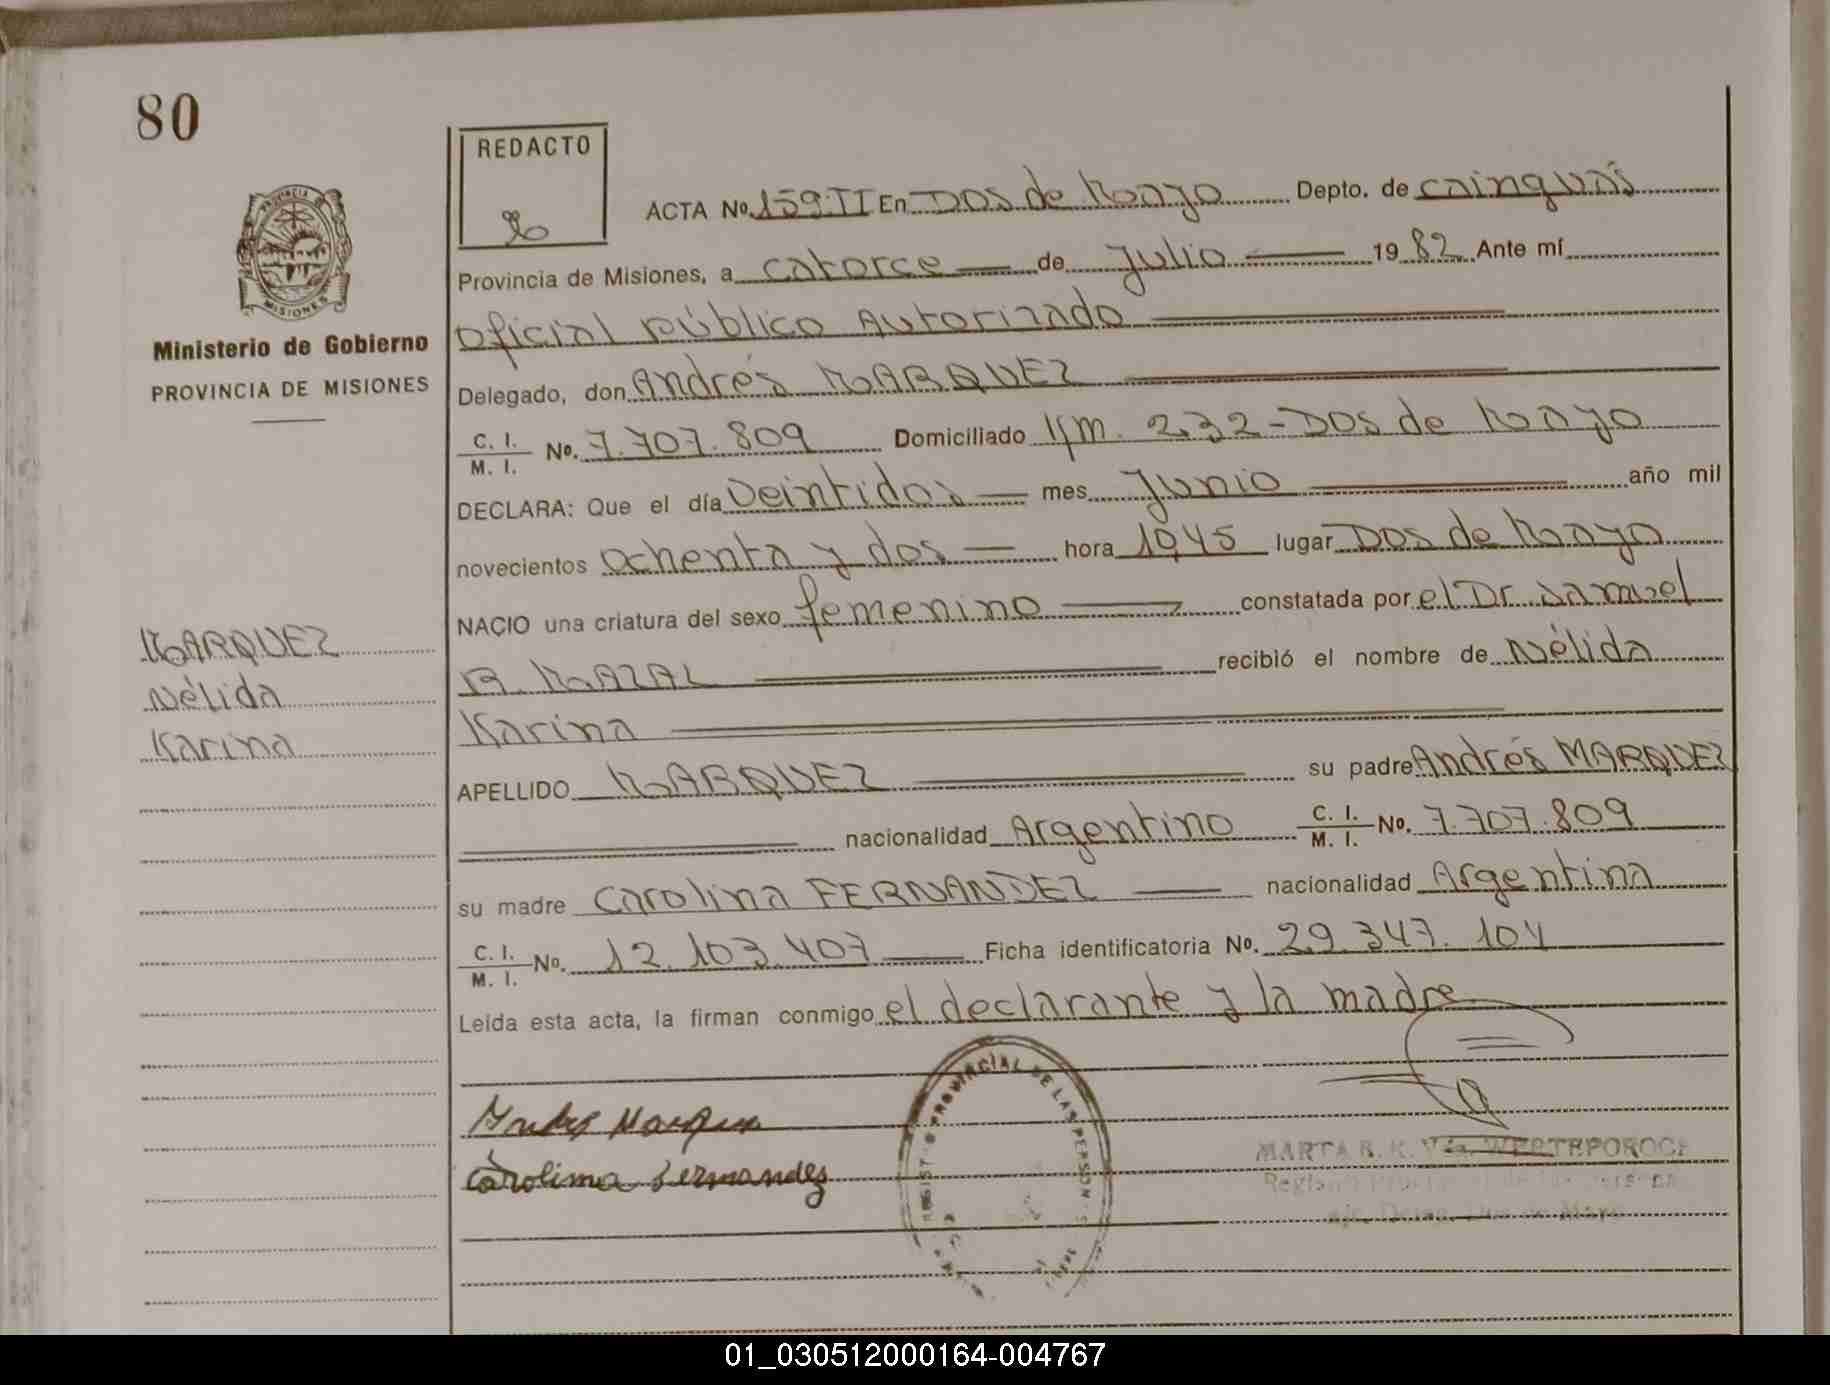 80
REDACTO
ACTA No. 159.II En DOS de Mayo Depto. de cainguás
Provincia de Misiones, a catorce de Julio 19 82. Ante mí
Oficial Público Autorizado
Ministerio de Gobierno
PROVINCIA DE MISIONES
Delegado, don Andrés MARQUEZ
C. I.
M. I. No. 7.707.809 Domiciliado Km. 232 - DOS de Mayo
DECLARA: Que el día veintidos mes Junio año mil
novecientos ochenta y dos hora 10,45 lugar DOS de Mayo
NACIO una criatura del sexo femenino constatada por el Dr. Samuel
R. MAZAL recibió el nombre de Nélida
Karina
MARQUEZ
Nélida
Karina
APELLIDO MARQUEZ su padre Andrés MARQUEZ
nacionalidad Argentino C. I.
M. I. No. 7.707.809
su madre Carolina FERNANDEZ nacionalidad Argentina
C. I.
M. I. No. 12.103.407 Ficha identificatoria No. 29.347.104
Leída esta acta, la firman conmigo el declarante y la madre
Andres Marques
Carolina Fernandez
PROVINCIAL DE LAS PERSONAS
MARTA R. K. Vda.
01_030512000164-004767